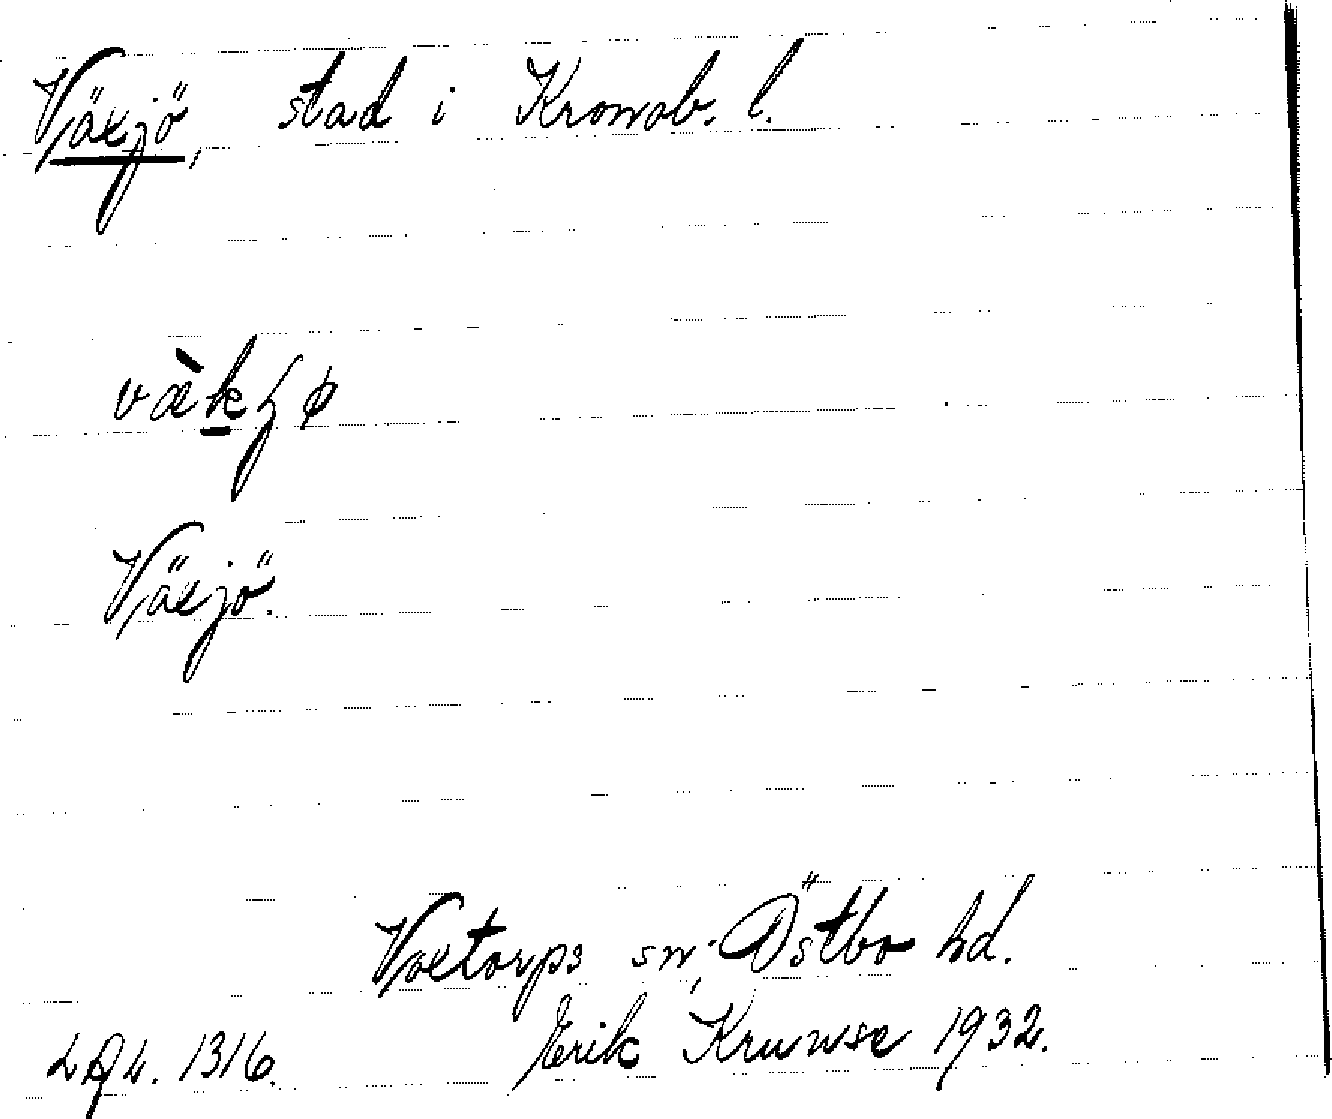 Växjö, stad i Kronob. l.
Växjö.
Voxtorps sn, Östbo hd.
Erik Kruuse 1932.
1316.